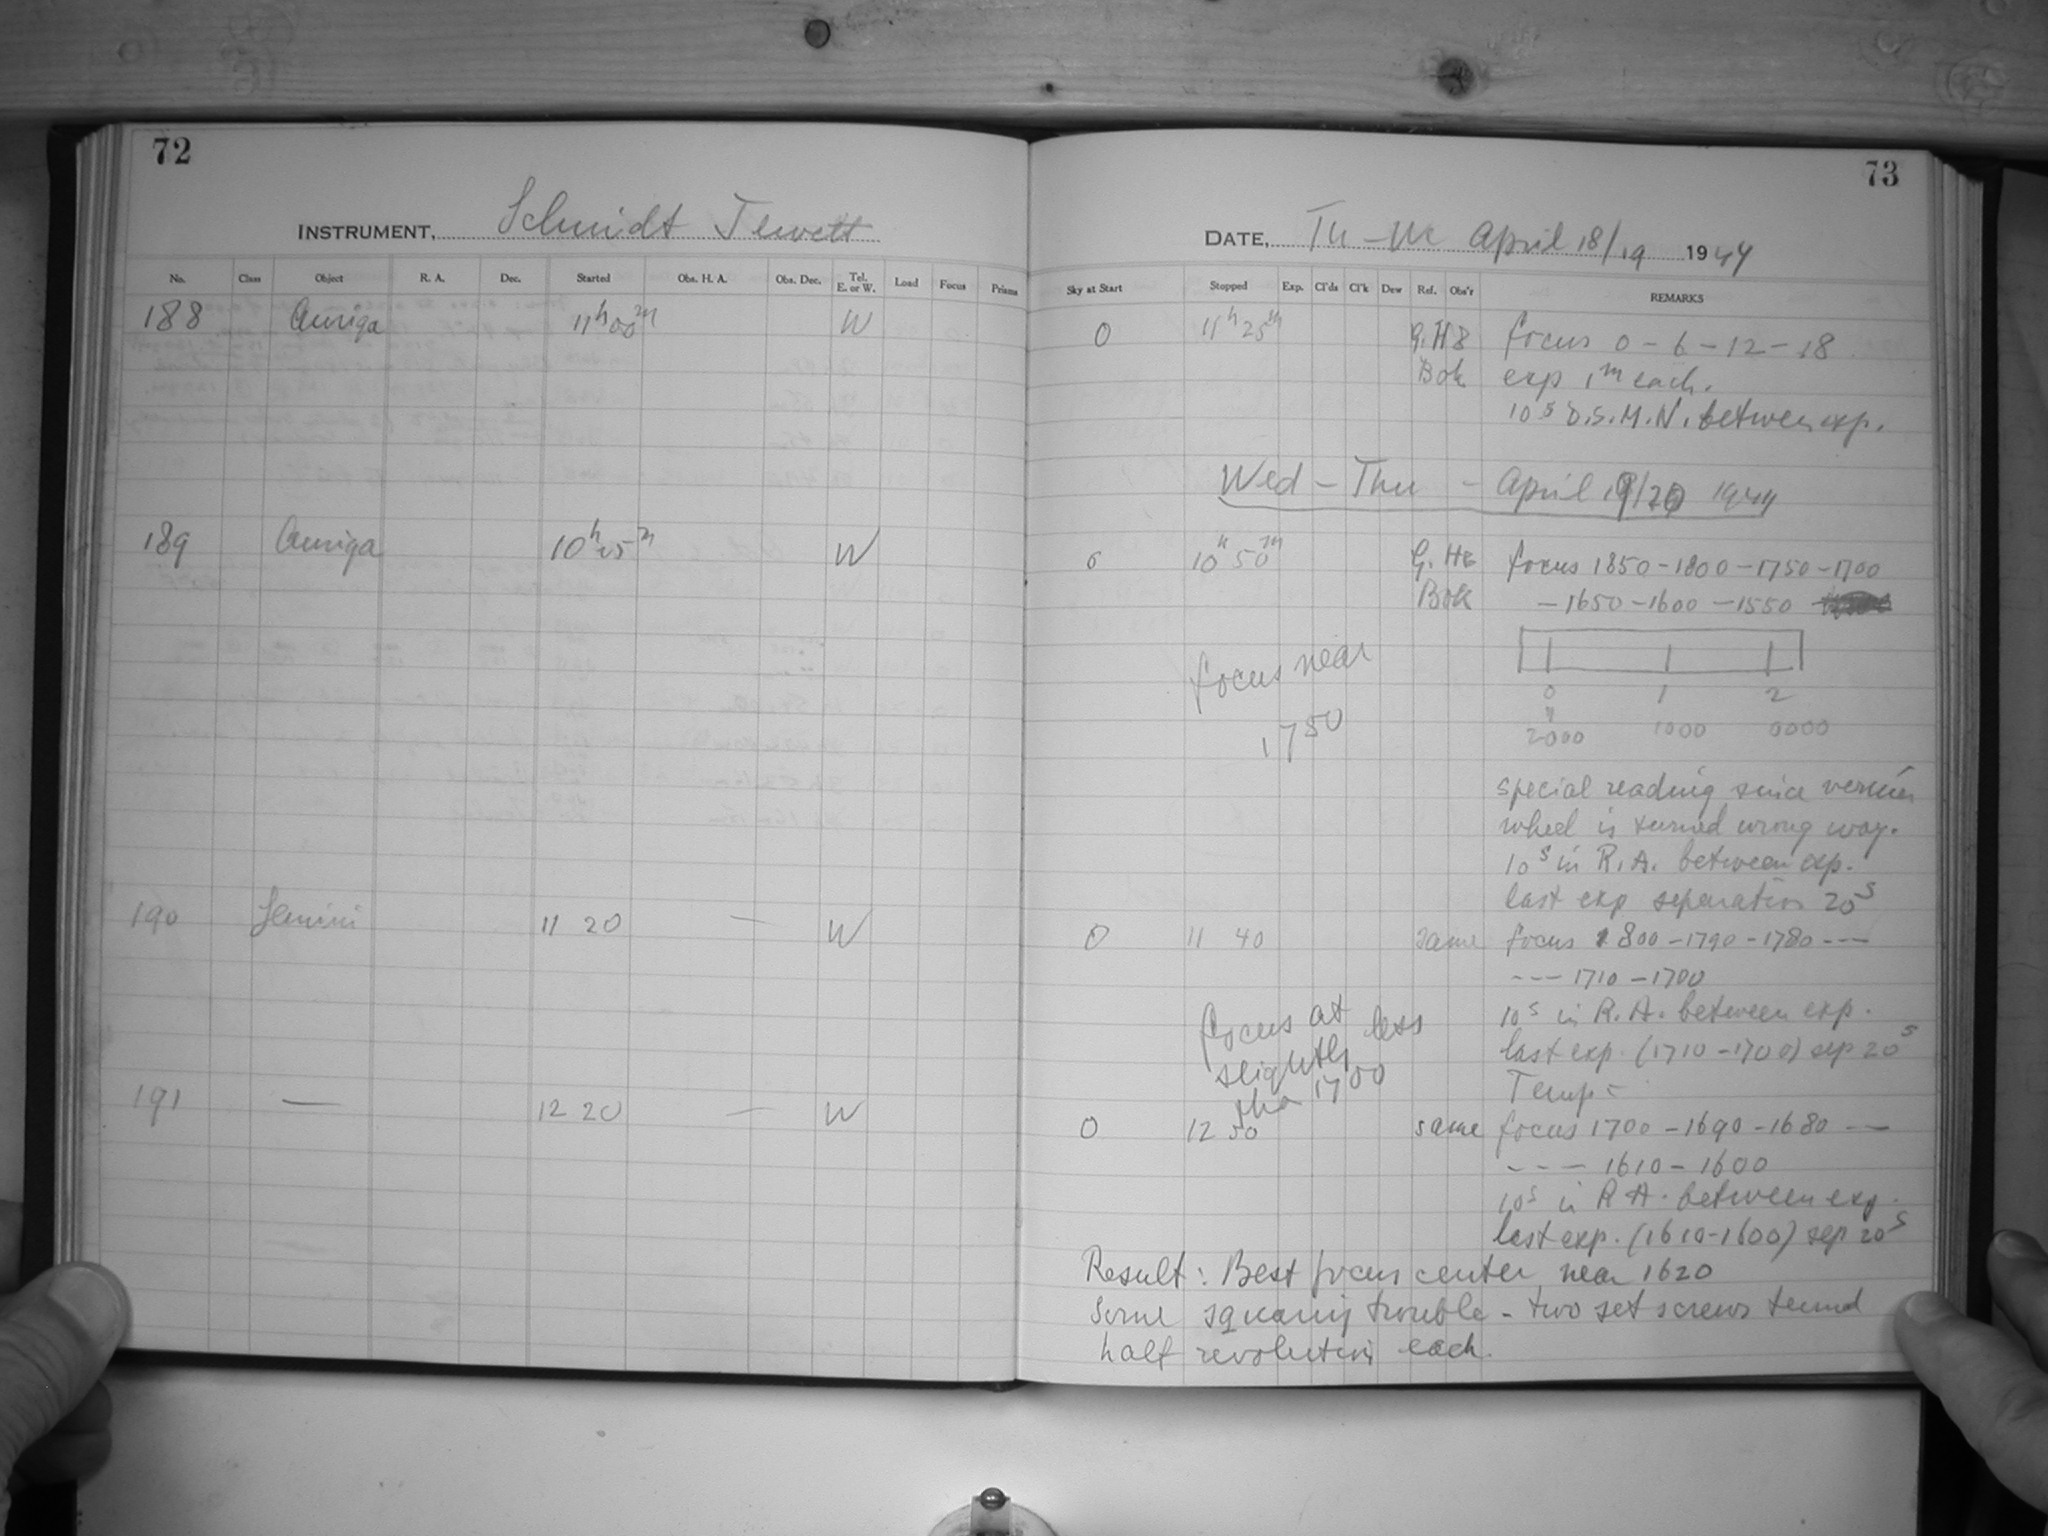 72
INSTRUMENT, Schmidt Jewett
No. Class Object R. A. Dec. Started Obs. H. A. Obs. Dec. Tel. E. or W. Load Focus Prisms
188 Auriga 11h 00m W
189 Auriga 10h 25m W
190 Gemini 11 20 — W
191 — 12 20 — W
73
DATE, Tu - We April 18/19 1944
Sky at Start Stopped Exp. Cl'ds Cl'k Dew Ref. Obs'r REMARKS
0 11h 25m focus 0 - 6 - 12 - 18
Bok exp 1m each.
10s between exp.
Wed - Thu - April 19/20 1944
0 10h 50m focus 1850 - 1800 - 1750 - 1700
Bok - 1650 - 1600 - 1550
focus near
1750
0 1 2
2000 1000 0000
special reading since vernier
wheel is turned wrong way.
10s in R.A. between exp.
last exp separation 20s
0 11 40 same focus 1800 - 1790 - 1780 ---
--- 1710 - 1700
focus at
slightly less
than 1700
10s in R.A. between exp.
last exp. (1710 - 1700) sep 20s
Temp =
0 12 50 same focus 1700 - 1690 - 1680 --
--- 1610 - 1600
10s in R A. between exp.
last exp. (1610-1600) sep 20s
Result: Best focus center near 1620
Some squaring trouble - two set screws turned
half revolution each.